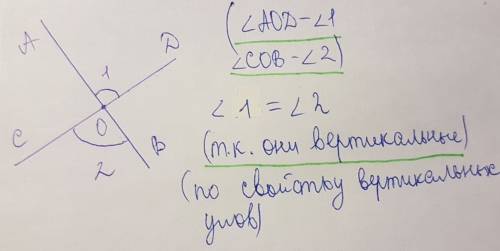 A
D
1
C
O
B
2
(∠AOD-∠1
∠COB-∠2)
∠1=∠2
(т.к. они вертикальные)
(по свойству вертикальных
углов)